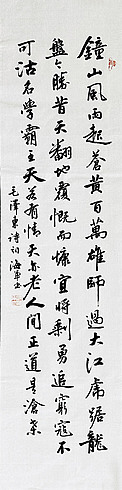 鐘山風雨起蒼黃百萬雄師過大江虎踞龍
盤今勝昔天翻地覆慨而慷宜將剩勇追窮寇不
可沽名學霸王天若有情天亦老人間正道是滄桑
毛澤東詩詞